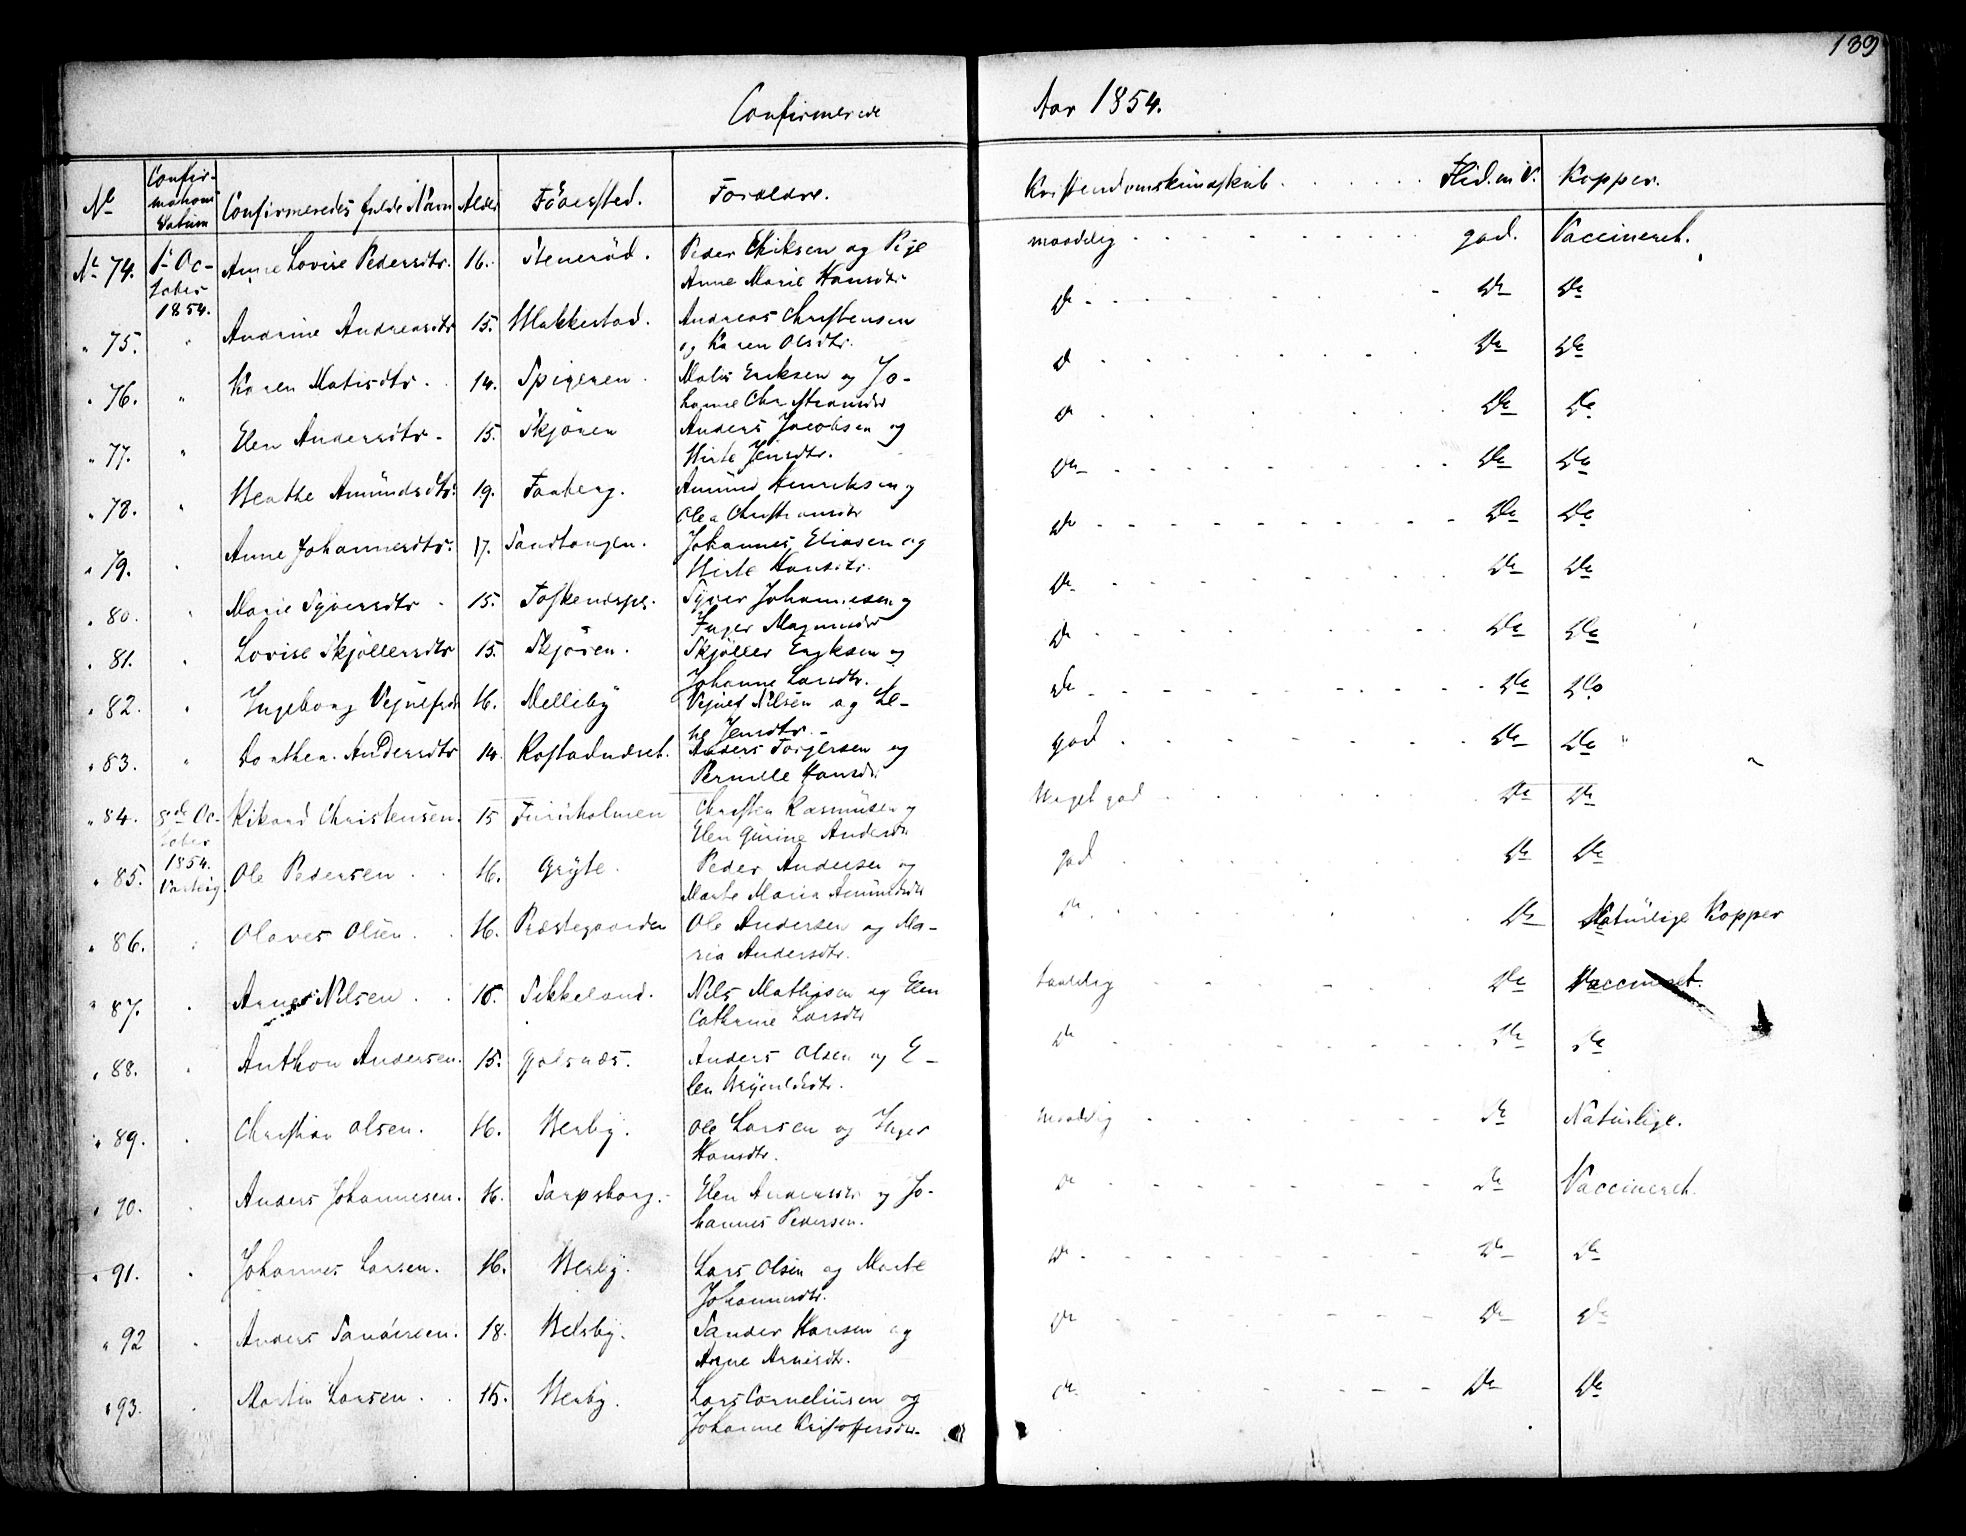 139
Confirmerede Aar 1854.
No Confirmations Datum Confirmeredes fulde Navn Alder Födested. Forældre. Kristendomskundskab . . . . . . Flid. Kopper.
No 74. 1 October 1854. Anne Lovise Pedersdtr. 16. Steneröd. Peder Eriksen og Pige maadelig god. Vaccineret.
Anne Marie Hansdtr
" 75. " Andrine Andreasdtr 15. Hakkestad. Andreas Christensen Do Do Do
og Karen Olsdtr.
" 76. " Karen Matisdtr. 14. Spigeren. Matis Eriksen og Jo- Do Do Do
hanne Christiansdtr
" 77. " Elen Andersdtr. 15. Skjören Anders Jacobsen og Do Do Do
Jensdtr.
" 78. " Amundsdtr. 19. Faaberg. Amund Henriksen og Do Do Do
Olea Christiansdtr
" 79. " Anne Johannesdtr. 17. Sandtangen. Johannes Eliasen og Do Do Do
Hansdtr.
" 80. " Marie Syversdtr 15. Syver Johannesen og Do Do Do
Inger Magnusdtr
" 81. " Lovise Skjöllersdtr 15. Skjören. Skjöller Eriksen og Do Do Do
Johanne Larsdtr.
" 82. " Ingeborg 16. Melleby Nilsen og Le- Do Do Do
ne Jensdtr.
" 83. " Dorthea Andersdtr 14. Kostadnæset. Anders Torgersen og god Do Do
Pernille Hansdtr
" 84. 8de October 1854. Varteig. Rikard Christensen. 15 Furuholmen Christen Rasmusen og Meget god Do Do
Elen Gurine Andersdtr
" 85. Ole Pedersen 16. Gryte. Peder Andersen og god Do Do
Marte Maria Amundsdtr
" 86. " Olaves Olsen 16. Præstegaarden Ole Andersen og Ma- Do Do Naturlige Kopper
ria Andersdtr.
" 87. " Nilsen 15. Sikkeland. Nils Mathisen og Elen taalelig Do Vaccineret.
Cathrine Larsdtr
" 88. " Anthon Andersen. 15. Anders Olsen og E- Do Do Do
len
" 89. " Christian Olsen. 16. Ole Larsen og Inger maadelig Do Naturlige.
Hansdtr.
" 90. " Anders Johannesen. 16. Sarpsborg. Elen Andersdtr og Jo- Do Do Vaccineret.
hannes Pedersen.
" 91. " Johannes Larsen. 16. Lars Olsen og Marte Do Do Do
Johannesdtr.
" 92 " Anders Sandersen. 18. Sander Hansen og Do Do Do
Anne Arnesdtr.
" 93. " Martin Larsen 15. Lars Corneliussen og Do Do Do
Johanne Kristoffersdtr.